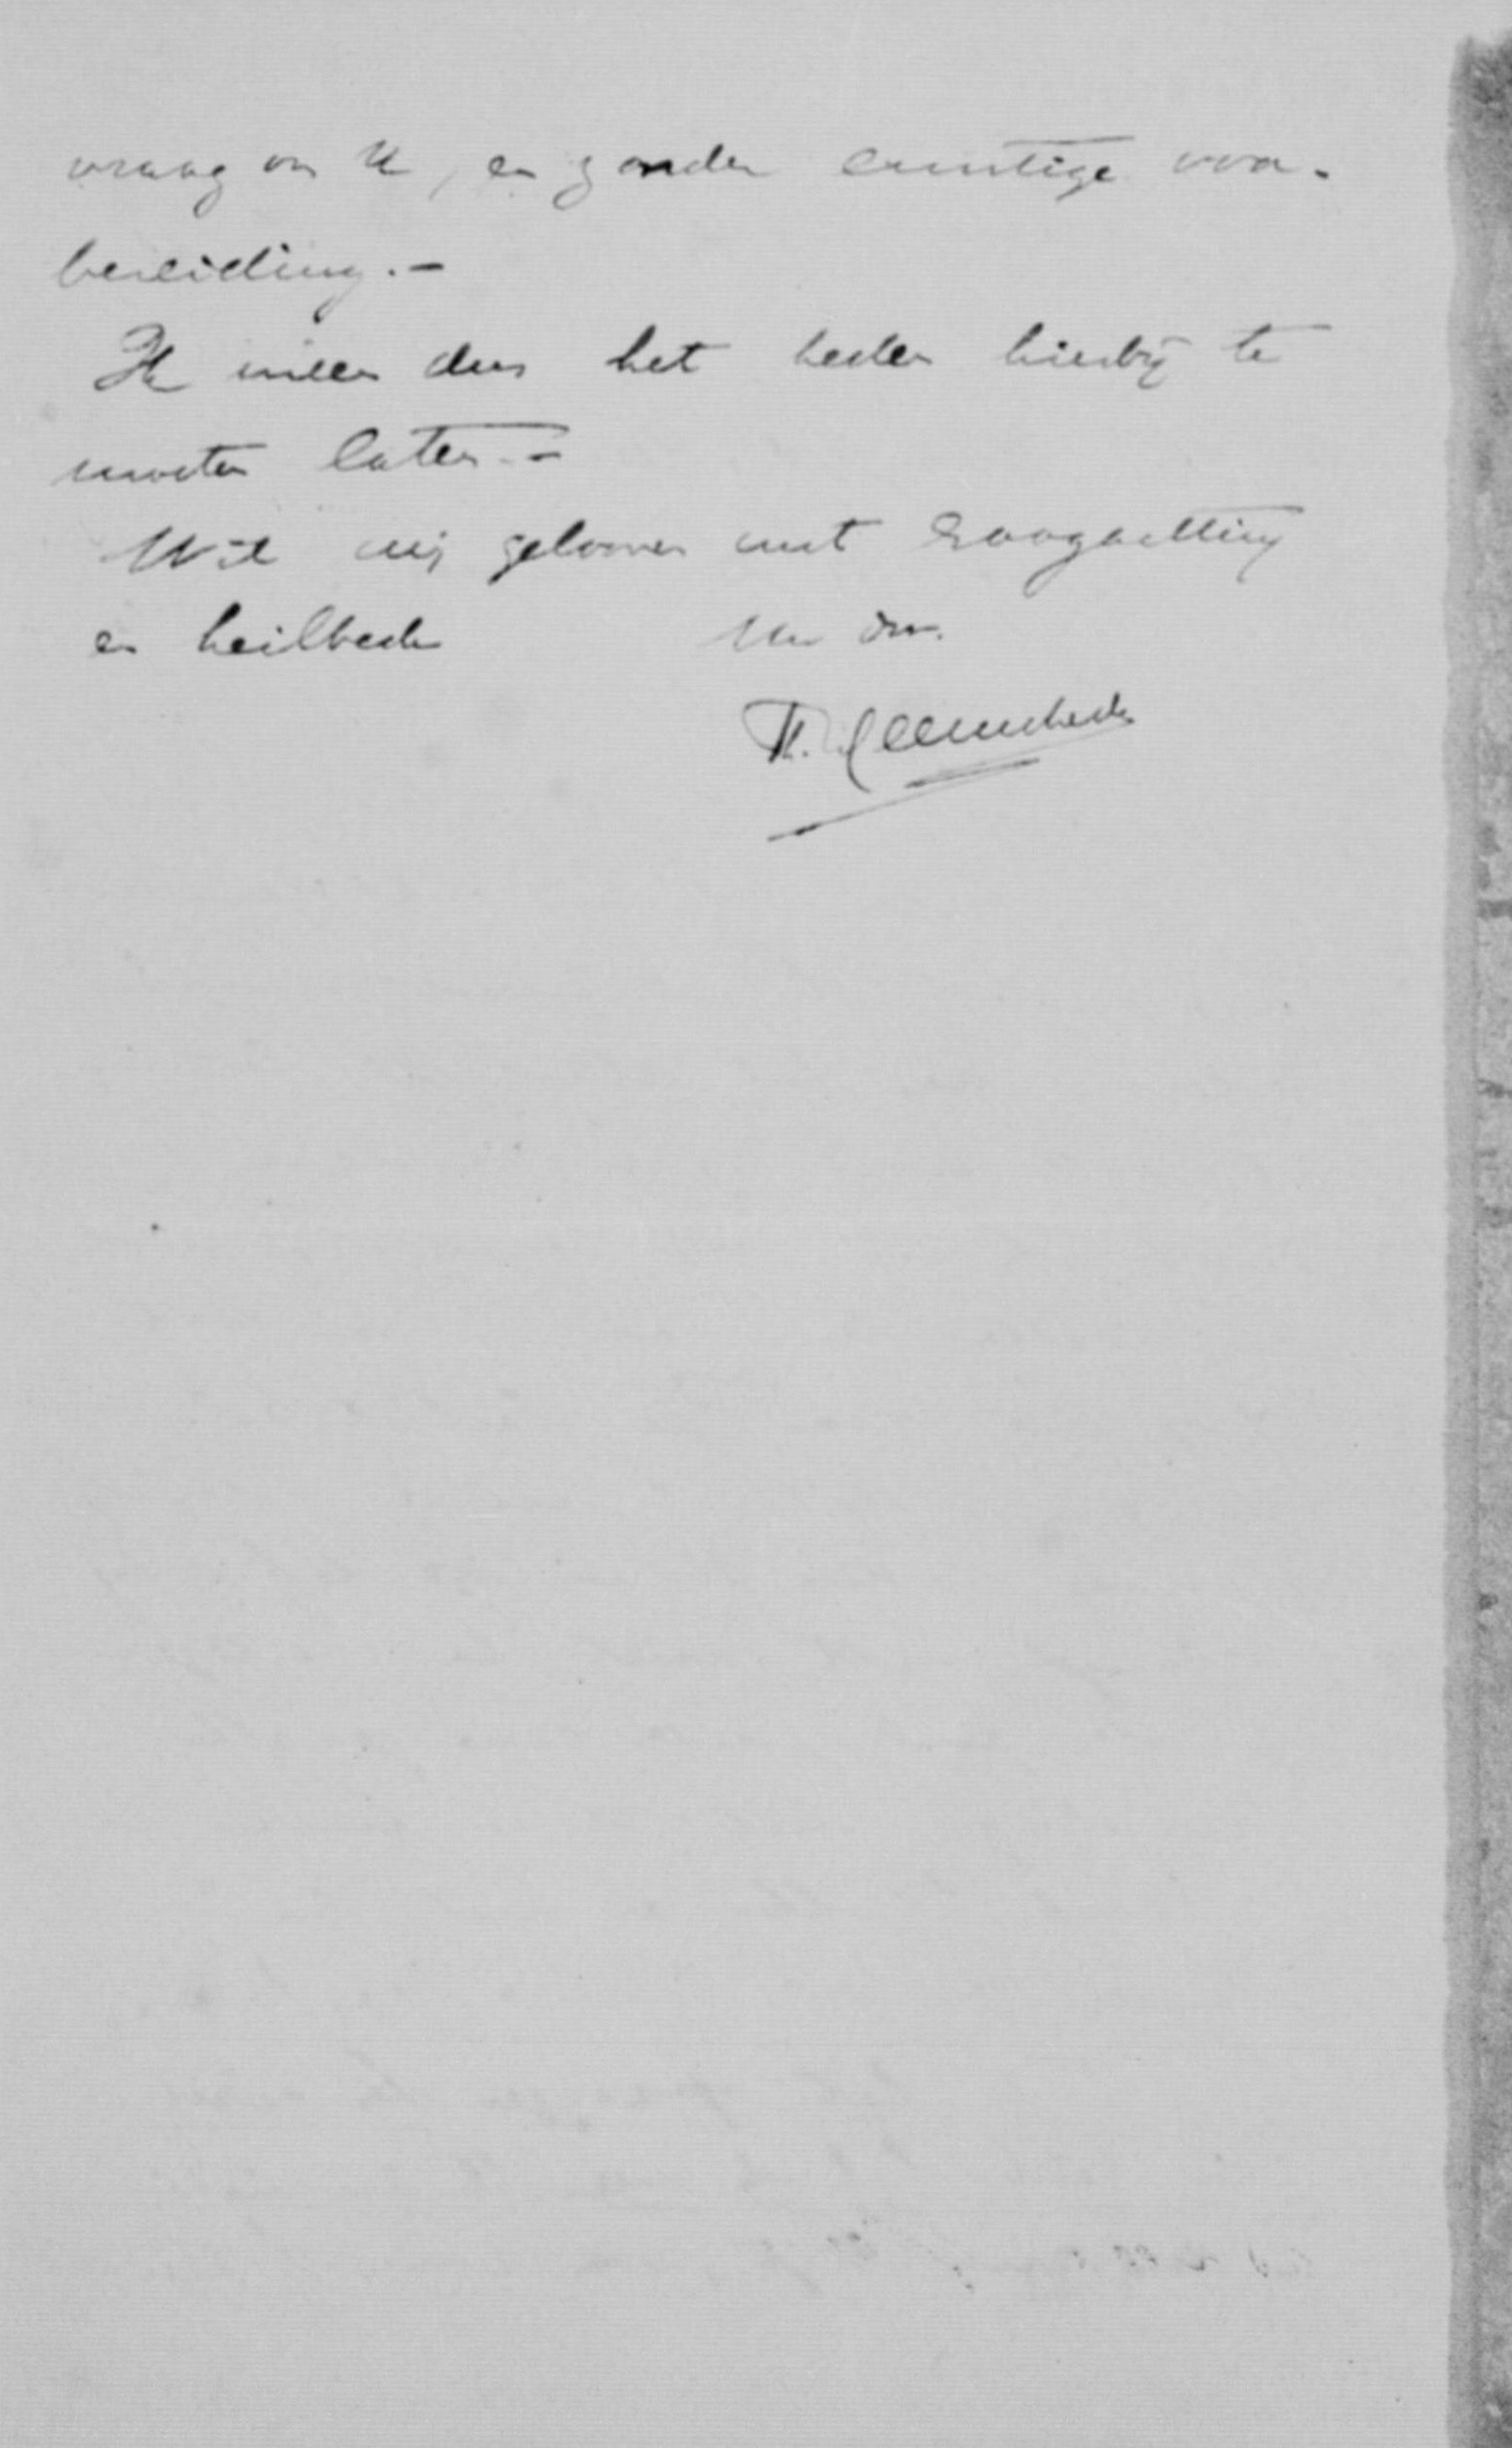 vraag en U, en zonder ernstige voor-
bereiding.-
Ik meen dus het heden hierbij te
moeten laten.-
Wil mij gelooven met hoogachting
en heilbede Uw dw.
Th. Heemskerk